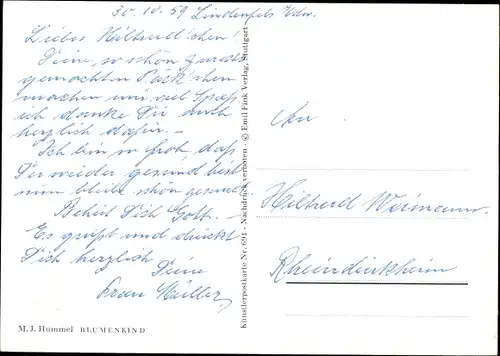 30.10.59 Lindenfels Odw.
Liebes Hiltrud'chen!
Deine, so schön zurecht
gemachten Päck'chen
machen mir viel Spaß
ich danke Dir auch
herzlich dafür. –
Ich bin so froh, daß
Du wieder gesund bist
nun bleibe schön gesund.
Behüt Dich Gott. –
Es grüßt und drückt
Dich herzlich
Deine
Frau Müller.
M. J. Hummel BLUMENKIND
Künstlerpostkarte Nr. 691 · Nachdruck verboten · © Emil Fink Verlag, Stuttgart
An
Hiltrud Weimann.
Rheindürkheim